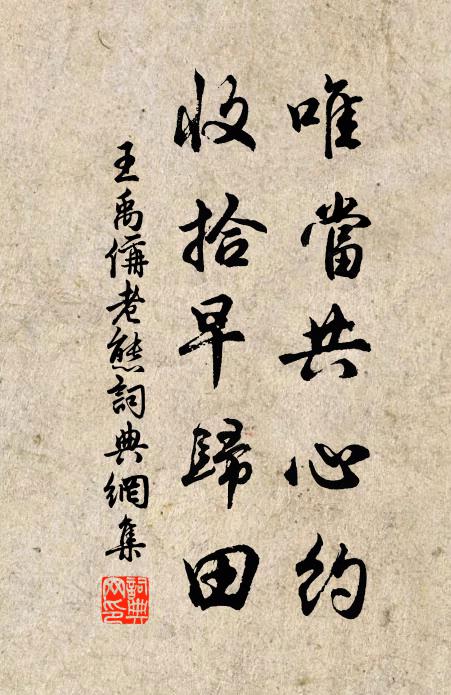 唯當共心約
收拾早歸田
王禹偁老態詞典網集
詞典
网印